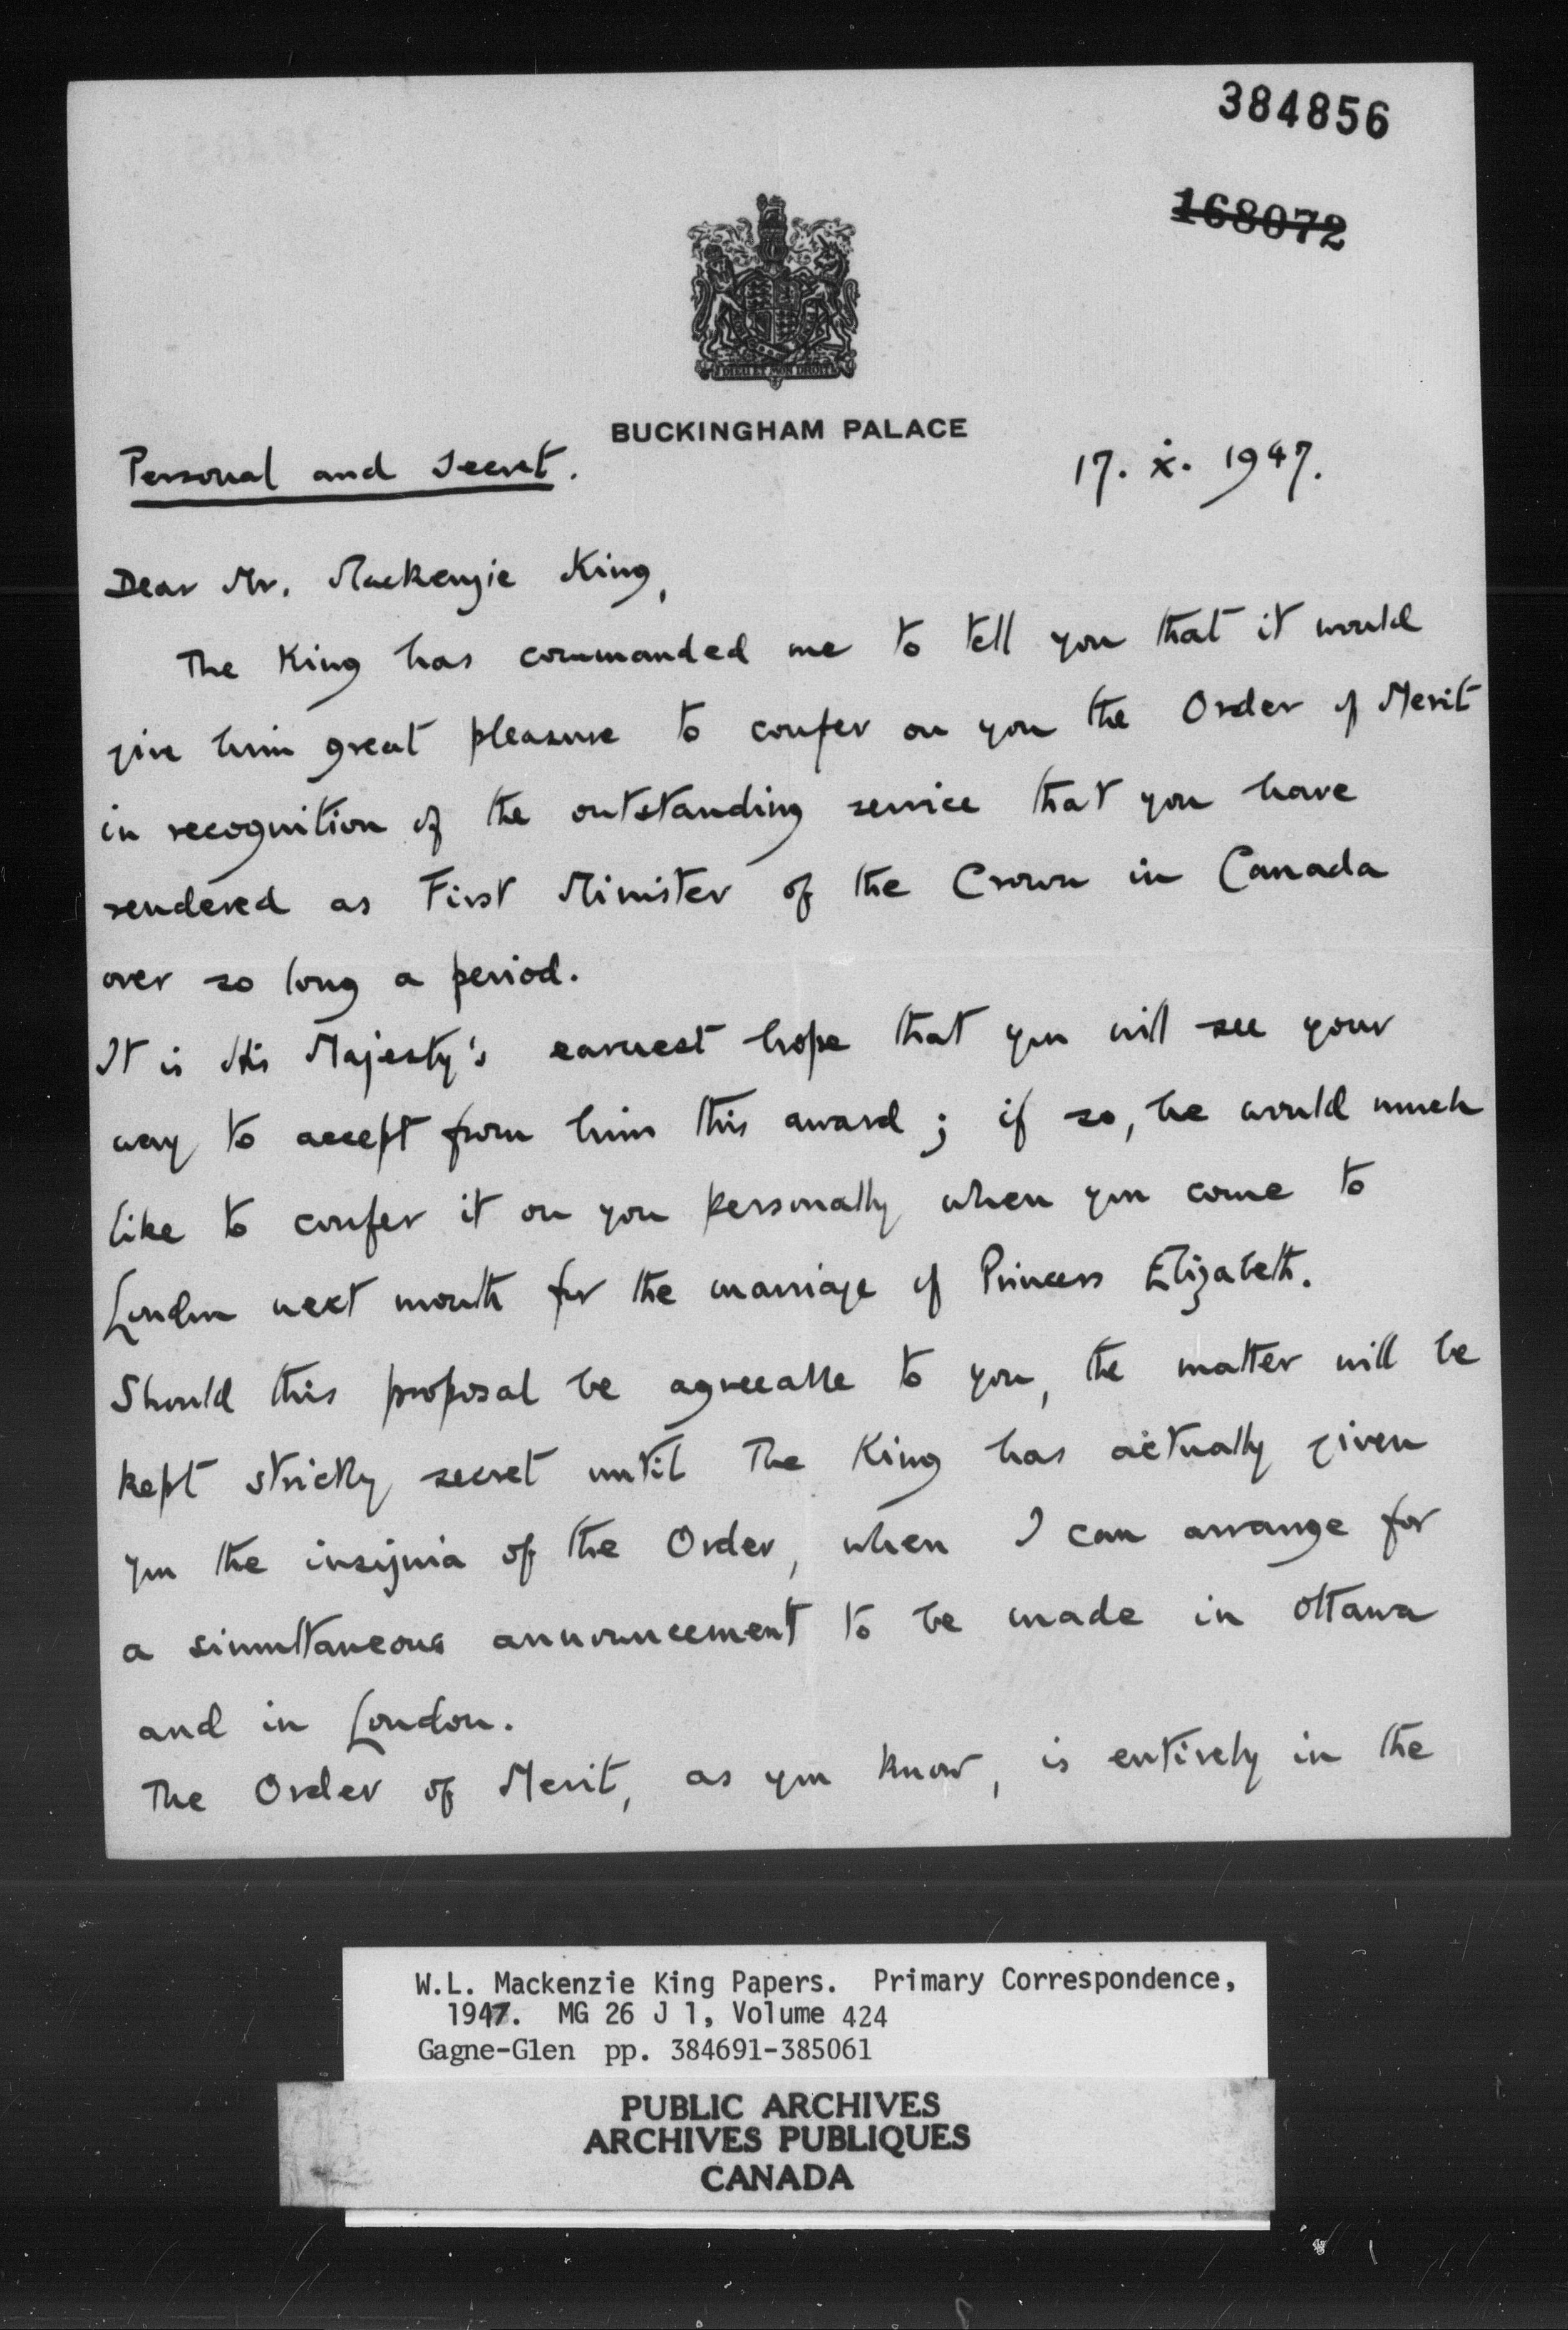 384856
168072
DIEU ET MON DROIT
BUCKINGHAM PALACE
Personal and Secret.
17. x. 1947.
Dear Mr. Mackenzie King,
The King has commanded me to tell you that it would
give him great pleasure to confer on you the Order of Merit
in recognition of the outstanding service that you have
rendered as First Minister of the Crown in Canada
over so long a period.
It is His Majesty's earnest hope that you will see your
way to accept from him this award; if so, he would much
like to confer it on you personally when you come to
London next month for the marriage of Princess Elizabeth.
Should this proposal be agreeable to you, the matter will be
kept strictly secret until The King has actually given
you the insignia of the Order, when I can arrange for
a simultaneous announcement to be made in Ottawa
and in London.
The Order of Merit, as you know, is entirely in the
W.L. Mackenzie King Papers. Primary Correspondence,
1947. MG 26 J 1, Volume 424
Gagne-Glen pp. 384691-385061
PUBLIC ARCHIVES
ARCHIVES PUBLIQUES
CANADA